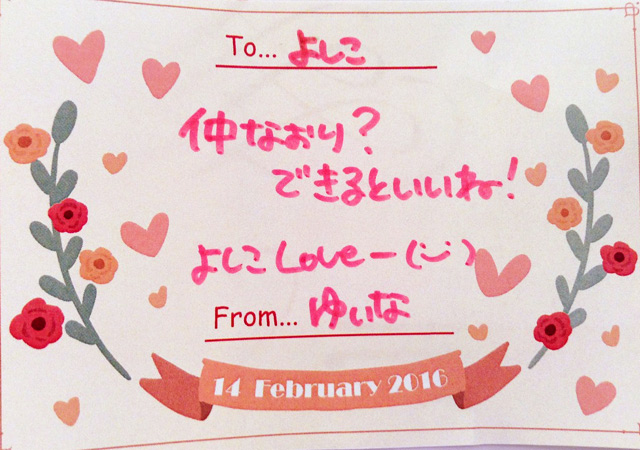 To... よしこ
仲なおり？
できるといいね！
よしこ Loveー(:))
From... ゆいな
14 February 2016